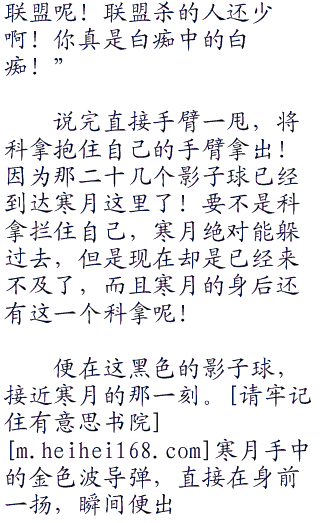 联盟呢！联盟杀的人还少
啊！你真是白痴中的白
痴！”
说完直接手臂一甩，将
科拿抱住自己的手臂拿出！
因为那二十几个影子球已经
到达寒月这里了！要不是科
拿拦住自己，寒月绝对能躲
过去，但是现在却是已经来
不及了，而且寒月的身后还
有这一个科拿呢！
便在这黑色的影子球，
接近寒月的那一刻。[请牢记
住有意思书院]
[m.heihei168.com]寒月手中
的金色波导弹，直接在身前
一扬，瞬间便出